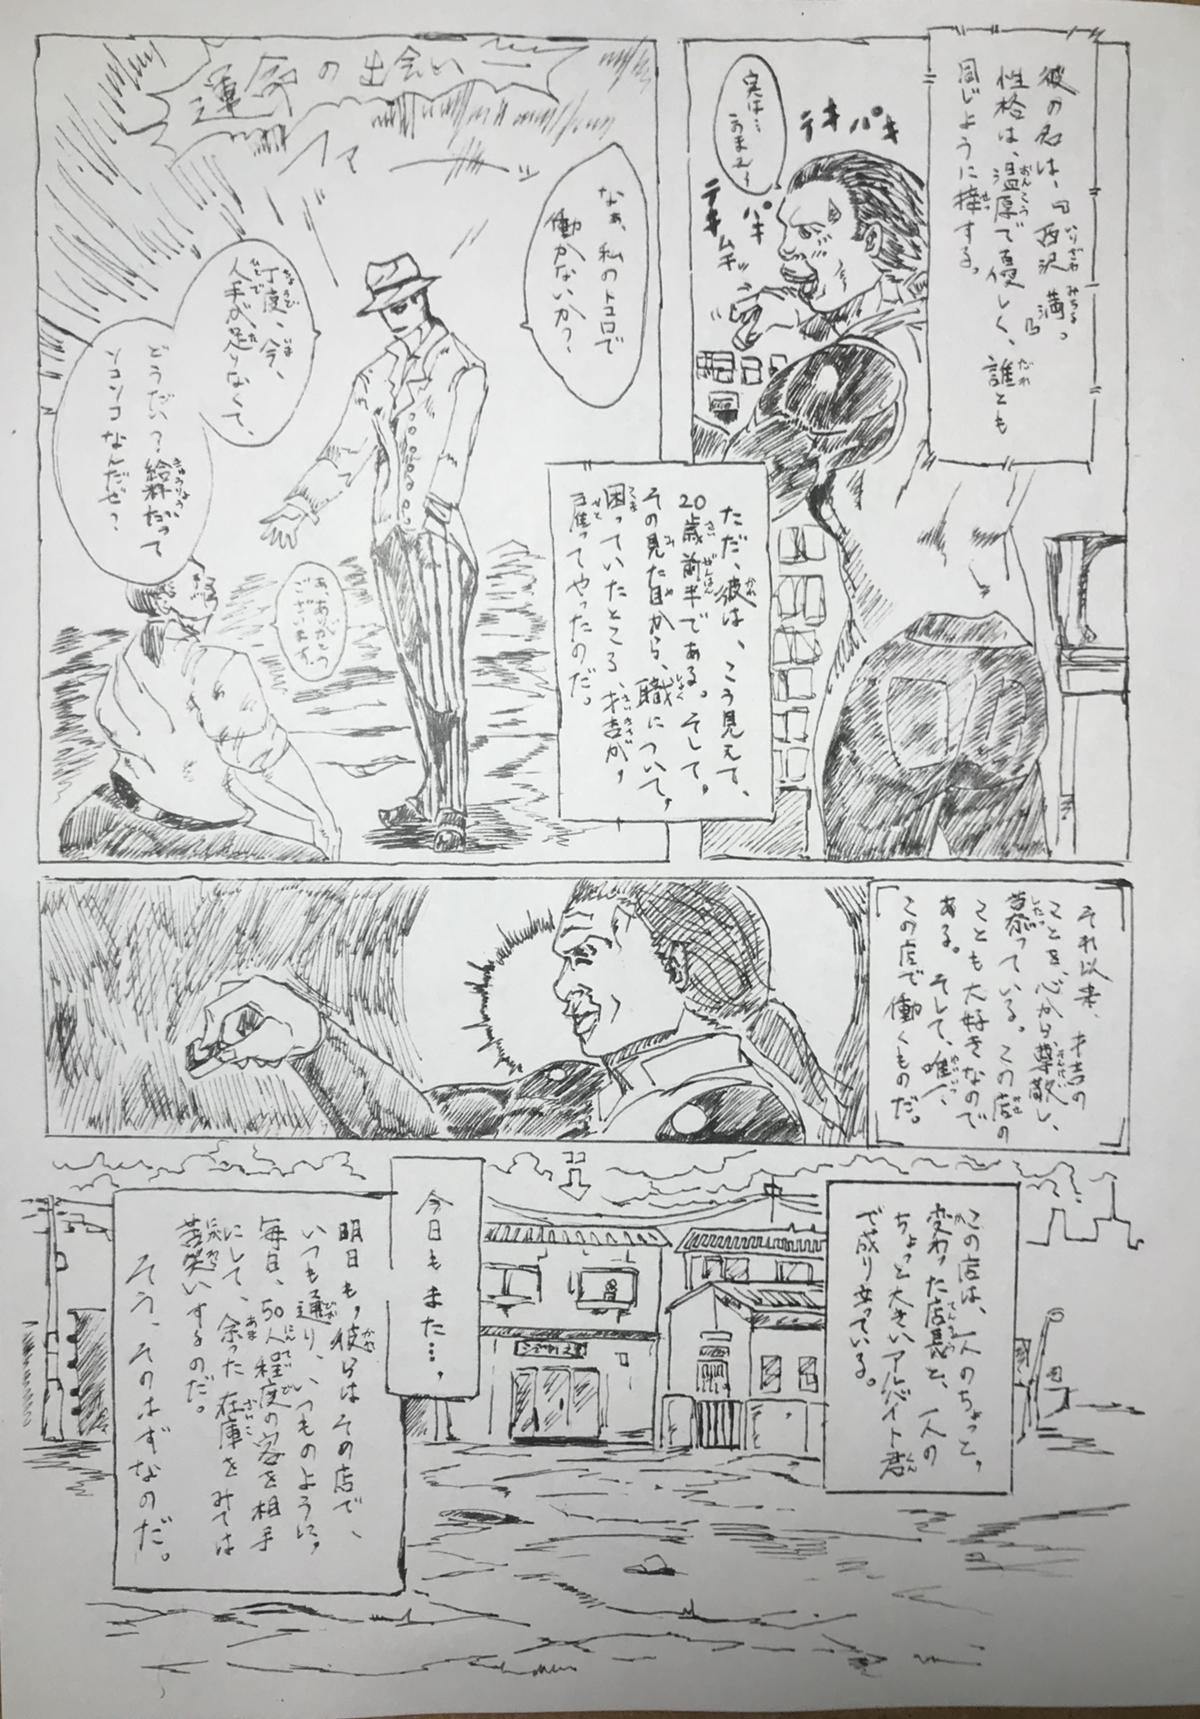 彼の名は、『西沢 満』。
性格は、温厚で優しく、誰とも
同じように接する。
実は…
うまみ
テキパキ
テキパキ
ムキッ
ただ、彼は、こう見えて、
20歳前半である。そして、
その見た目から、職について、
困っていたところ、才吉が、
雇ってやったのだ。
運命の出会い
ファーッ
なぁ、私のトコロで
働かないか?
丁度、今、
人手が足りなくて、
どうだい?給料だって
ソコソコなんだぜ?
あ、ありがとう
ございます。
それ以来、才吉の
ことを、心から尊敬し、
慕っている。この店の
ことも大好きなので
ある。そして、唯一、
この店で働くものだ。
この店は、一人のちょっと、
変わった店長と、一人の
ちょっと大きいアルバイト君
で成り立っている。
ココ
今日もまた…,
明日も,彼らはその店で、
いつも通り、いつものように,
毎日、50人程度の客を相手
にして、余った在庫をみては
苦笑いするのだ。
そう、そのはずなのだ。